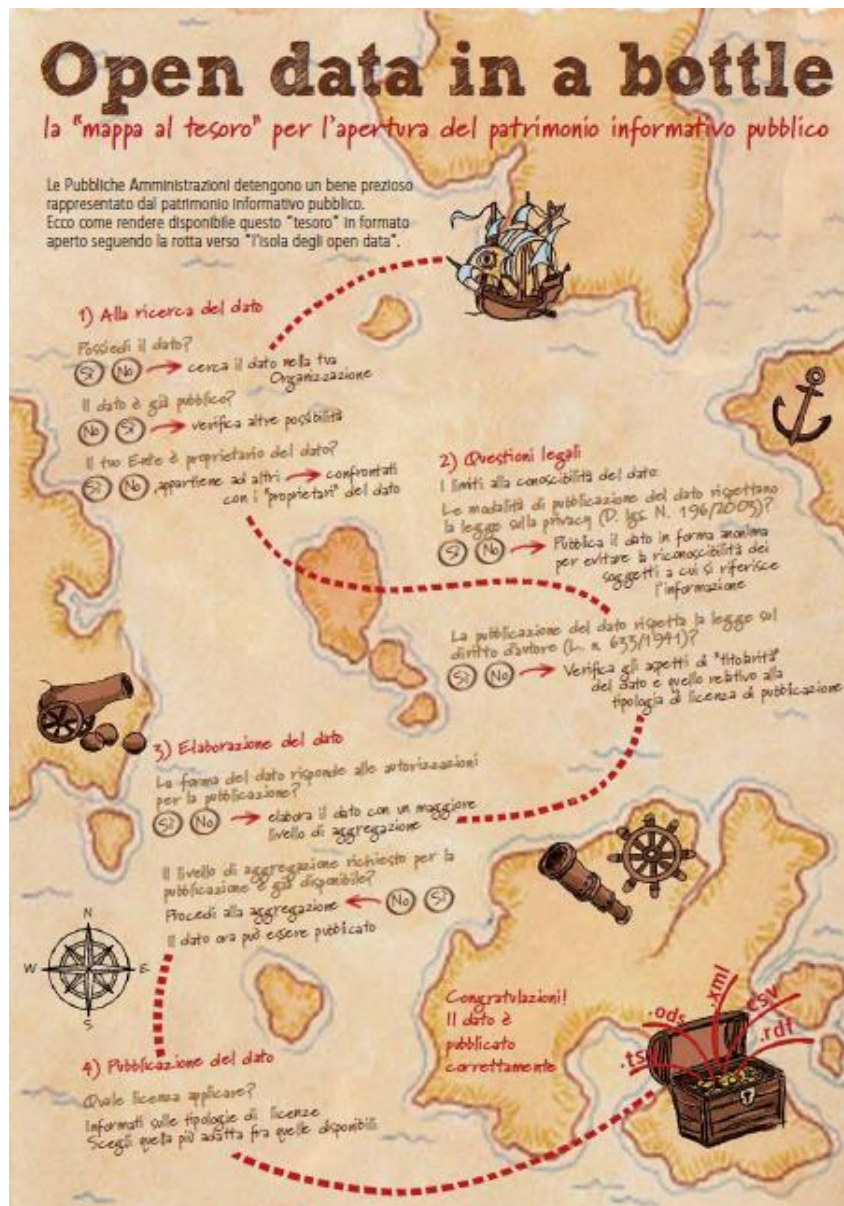 Open data in a bottle
la "mappa al tesoro" per l'apertura del patrimonio informativo pubblico
Le Pubbliche Amministrazioni detengono un bene prezioso
rappresentato dal patrimonio informativo pubblico.
Ecco come rendere disponibile questo "tesoro" in formato
aperto seguendo la rotta verso "l'isola degli open data".
1) Alla ricerca del dato
Possiedi il dato?
Sì No cerca il dato nella tua
Organizzazione
Il dato è già pubblico?
No Sì verifica altre possibilità
Il tuo Ente è proprietario del dato?
Sì No, appartiene ad altri confrontati
con i "proprietari" del dato
2) Questioni legali
I limiti alla conoscibilità del dato:
Le modalità di pubblicazione del dato rispettano
la legge sulla privacy (D. lgs. N. 196/2003)?
Sì No Pubblica il dato in forma anonima
per evitare la riconoscibilità dei
soggetti a cui si riferisce
l'informazione
La pubblicazione del dato rispetta la legge sul
diritto d'autore (L. n. 633/1941)?
Sì No Verifica gli aspetti di "titolarità"
del dato e quello relativo alla
tipologia di licenza di pubblicazione
3) Elaborazione del dato
La forma del dato risponde alle autorizzazioni
per la pubblicazione?
Sì No elabora il dato con un maggiore
livello di aggregazione
Il livello di aggregazione richiesto per la
pubblicazione è già disponibile?
Procedi alla aggregazione No Sì
Il dato ora può essere pubblicato
N
W E
S
4) Pubblicazione del dato
Quale licenza applicare?
Informati sulle tipologie di licenze
Scegli quella più adatta fra quelle disponibili
Congratulazioni!
Il dato è
pubblicato
correttamente
.ts
.ods
.xml
.csv
.rdf